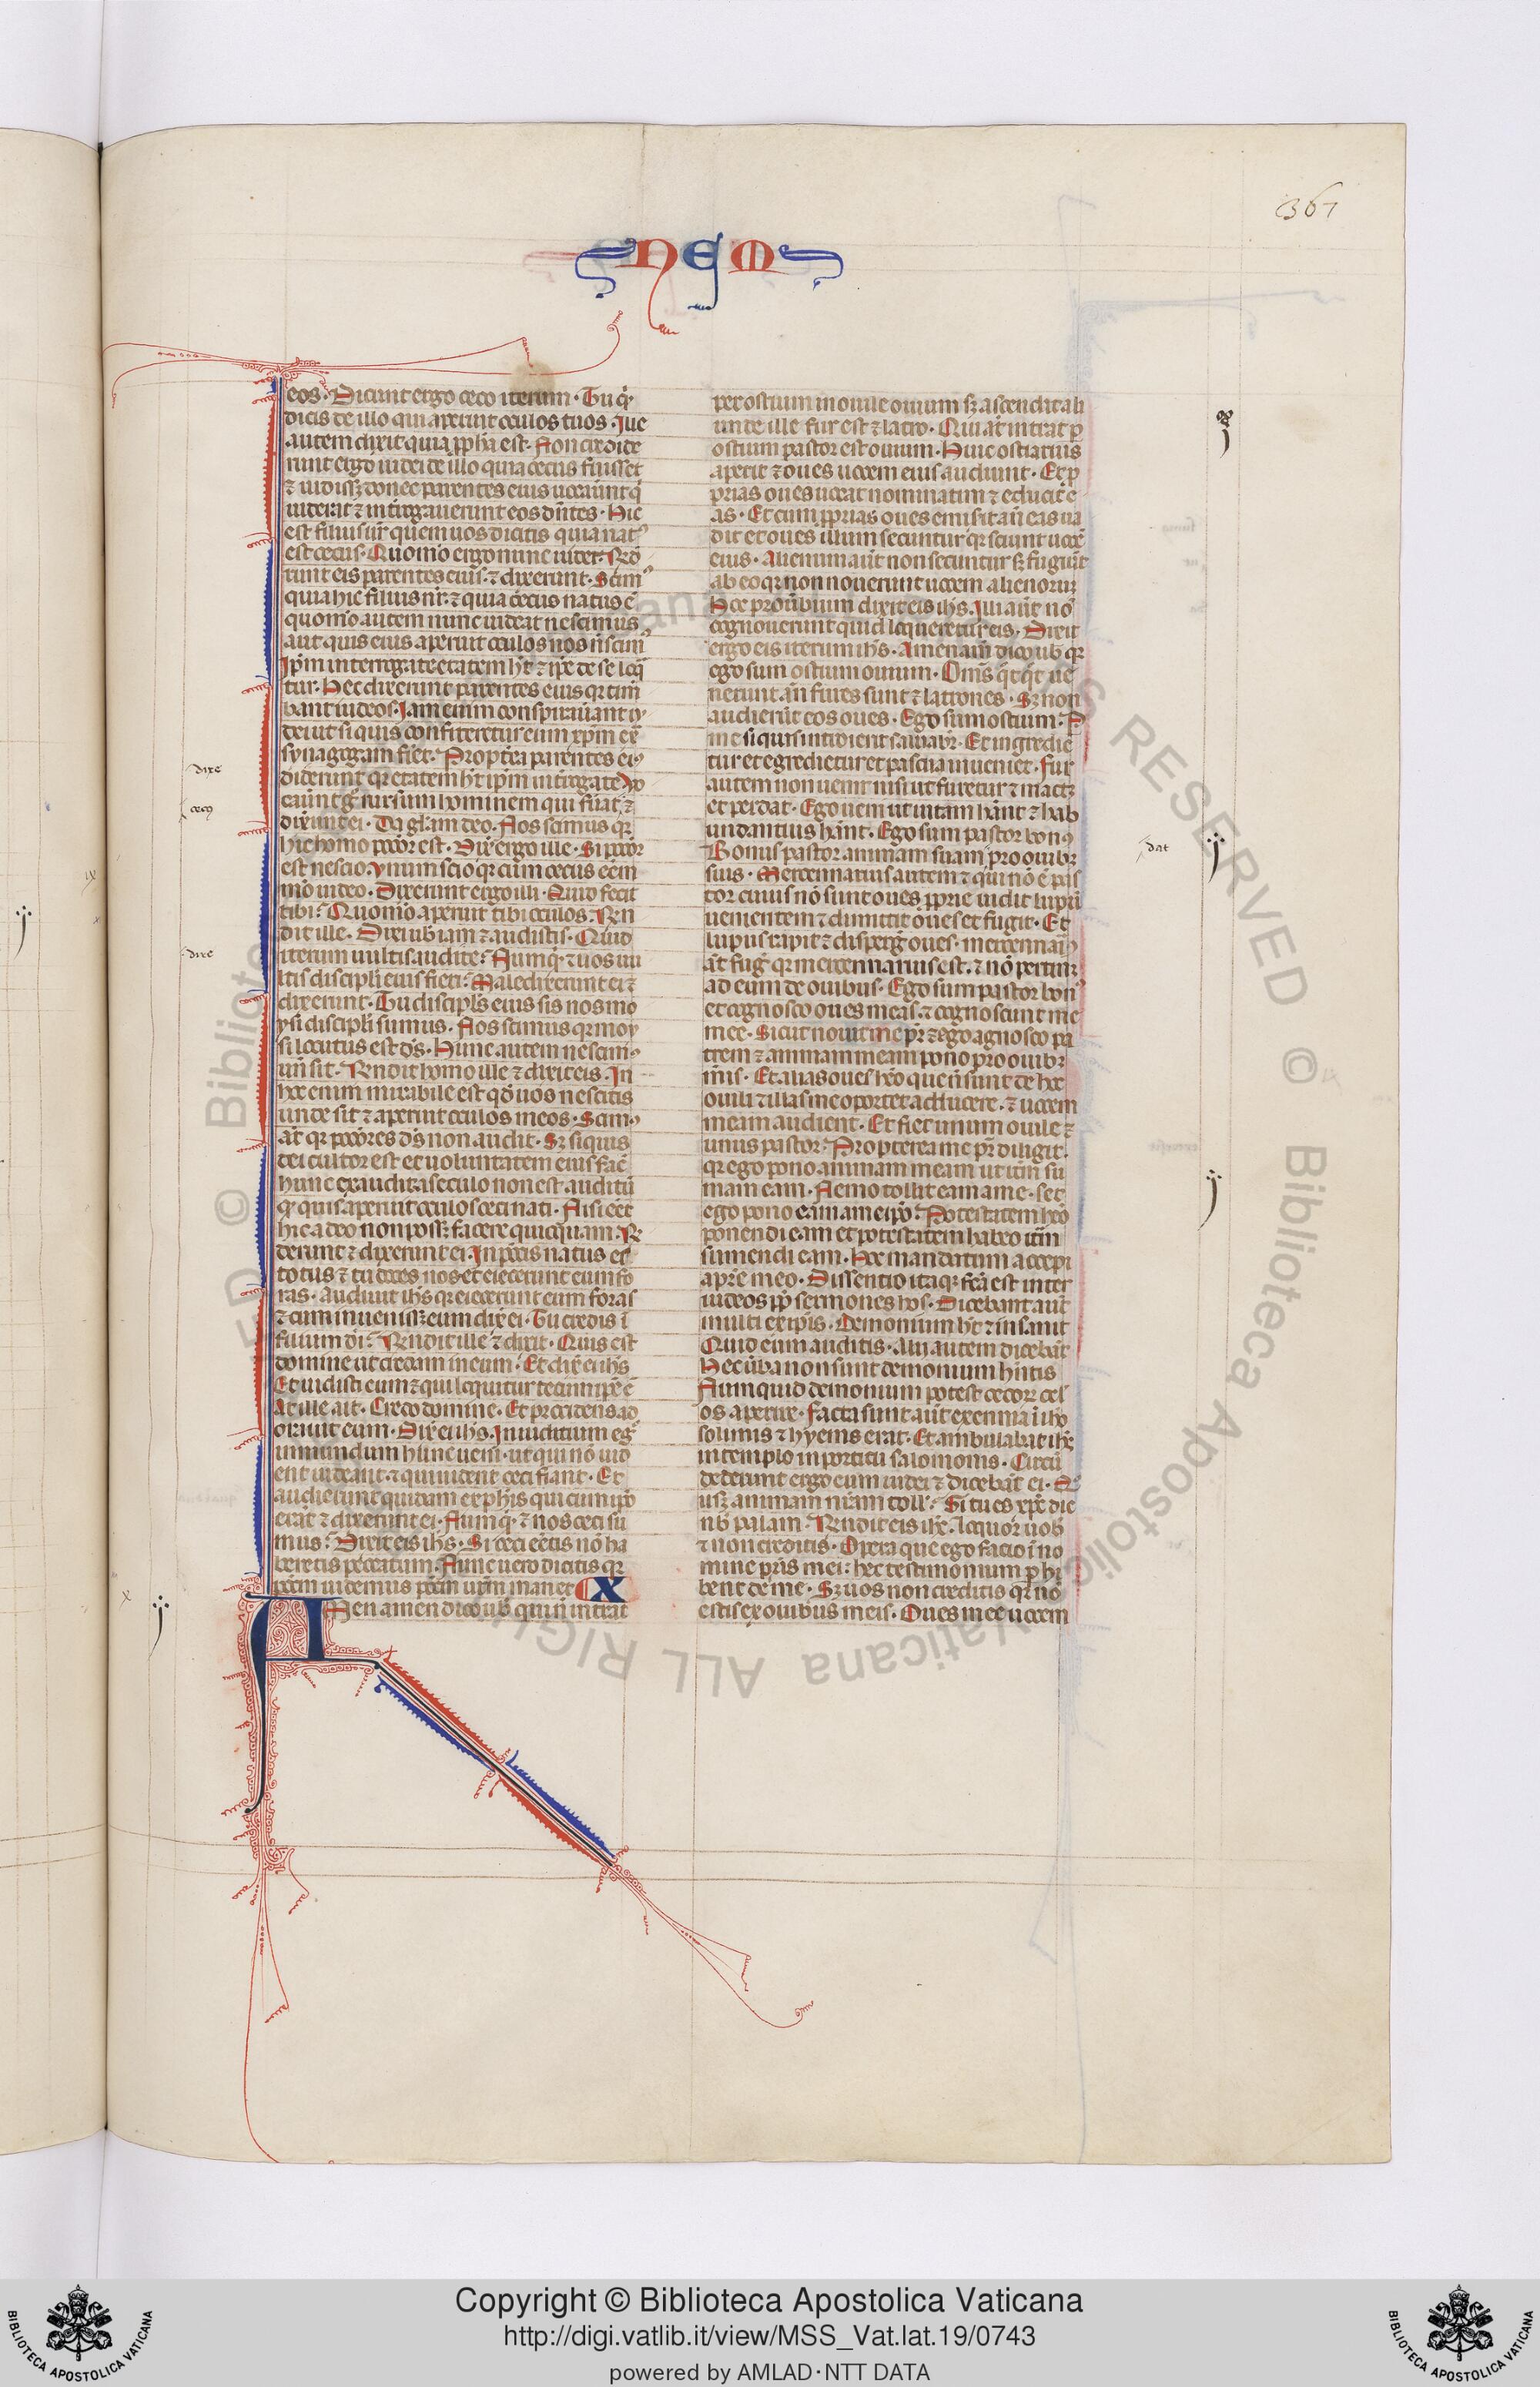 367
NEM
eos. Dicunt ergo ceco iterum. Tu qͥ
dicis de illo qui aperuit oculos tuos. Ille
autem dixit quia ꝓpha est. Non credide
runt ergo iudei de illo quia cecus fuisset
⁊ uidissꝫ donec parentes eius uocauͤunt qͥ
uiderat ⁊ int͛rogauerunt eos dn̄tes. Hic
est filius ur̄ quem uos dicitis quia natꝰ
est cecus. Quomō ergo nunc uidet. Rn̄
derunt eis parentes eius. ⁊ dixerunt. Scimꝰ
quia hic filius nr̄. ⁊ quia cecus natus ē
quomō autem nunc uideat nescimus
aut quis eius aperuit oculos nos n̄ scimꝰ
Ip̄m interrogate etatem ht̄ ⁊ ip̄e de se loq̄
tur. Hec dixerunt parentes eius qꝛ tim̄
bant iudeos. Iam enim conspirauͤant iu
dei ut si quis confiteretur eum xp̄m ex̄
synagogam fiet. Propt͛ea parentes eiꝰ
dixerunt qꝛ etatem ht̄ ip̄m int͛rogate. Uo
cauͤunt g̊ rursum hominem qui fuͤat ⁊
dixͤunt ei. Da gl̄am deo. Nos scimus qꝛ
hic homo pctōr est. Dix̄ ergo ille. Si pctōr
est nescio. Unum scio qꝛ cum cecus eēm
mō uideo. Dixerunt ergo illi. Quid fecit
tibi. Quomō aperuit tibi oculos. Rn̄
dit ille. Dixi ub̄ iam ⁊ audistis. Quid
iterum uultis audire. Nunqͥ ⁊ uos uu
ltis discipl̄i eius fieri. Maledixerunt ei ⁊
dixerunt. Tu discipl̄s eius sis nos mo
ysi discipl̄i sumus. Nos scimus qꝛ moy
si locutus est dꝰs. Hunc autem nescimꝰ
un̄ sit. Rn̄dit homo ille ⁊ dixit eis. In
hoc enim mirabile est qd̄ uos nescitis
unde sit ⁊ aperuit oculos meos. Scimꝰ
at̄ qꝛ pctōres dꝰs non audit. Sꝫ si quis
dei cultor est et uoluntatem eius fac̄
hunc exaudit. a seculo non est auditū
qꝛ quis aperuit oculos ceci nati. Nisi eēt
hic a deo non possꝫ facere quicquam. Rn̄
derunt ⁊ dixerunt ei. In pctīs natus es
totus ⁊ tu doces nos et eiecerunt eum fo
ras. Audiuit ih̄s qꝛ eiecerunt eum foras
⁊ cum inuenissꝫ eum dix̄ ei. Tu credis ī
filium dī. Rn̄dit ille ⁊ dixit. Quis est
domine ut credam in eum. Et dix̄ ei ih̄s
Et uidisti eum ⁊ qui loquitur tecum ip̄e ē
At ille ait. Credo domine. Et procidens ad
orauit eum. Dix̄ ei ih̄s. In iuditium eg̊
in mundum hunc ueni. ut qui nō uid
ent uideant. ⁊ qui uident ceci fiant. Et
audierunt quidam ex ph̄is qui cum ip̄o
erāt ⁊ dixerunt ei. Nunqͥ ⁊ nos ceci su
mus. Dixit eis ih̄s. Si ceci eētis nō ha
beretis peccatum. Nunc uero dicitis qꝛ
uidemus pctm̄ ur̄m manet X
Amen amen dico ub̄ qui n̄ intrat
per ostium in ouile ouium sꝫ ascendit ali
unde ille fur est ⁊ latro. Qui at̄ intrat ꝑ
ostium pastor est ouium. Huic ostiarius
aperit ⁊ oues uocem eius audiunt. Et ꝓ
prias oues uocat nominatim ⁊ educit e
as. Et cum ꝓprias oues emisit an̄ eas ua
dit et oues illum secuntur qꝛ sciunt uocē
eius. Alienum aut̄ non secuntur sꝫ fugiūt
ab eo qꝛ non nouerunt uocem alienorum
Hoc prouͤbium dixit eis ih̄s. Illi aūt nō
cognouerunt quid loqueretur eis. Dixit
ergo eis iterum ih̄s. Amen am̄ dico ub̄ qꝛ
ego sum ostium ouium. Oms̄ qͦtqͦt ue
nerunt an̄ fures sunt ⁊ latrones. Sꝫ non
audierūt eos oues. Ego sum ostium. P
me si quis introierit saluabr̄. Et ingredie
tur et egredietur et pascua inueniet. Fur
autem non uenit nisi ut furetur ⁊ mactꝫ
et perdat. Ego ueni ut uitam hān̄t ⁊ hab
undantius hān̄t. Ego sum pastor bonꝰ
Bonus pastor animam suam pro ouibꝫ
suis. Mercennarius autem ⁊ qui nō ē pas
tor cuius nō sunt oues ꝓprie uidit lupū
uenientem ⁊ dimittit oues et fugit. Et
lupus rapit ⁊ disperḡ oues. mercennariꝰ
at̄ fuḡ qꝛ mercennarius est. ⁊ nō pertinꝫ
ad eum de ouibus. Ego sum pastor bonꝰ
et cognosco oues meas. ⁊ cognoscunt me
mee. Sicut nouit me pr̄ ⁊ ego agnosco pa
trem ⁊ animam meam pono pro ouibꝫ
meis. Et alias oues hēo que n̄ sunt de hoc
ouili ⁊ illas me oportet adducere. ⁊ uocem
meam audient. Et fiet unum ouile ⁊
unus pastor. Propterea me pr̄ diligit
qꝛ ego pono animam meam ut itm̄ su
mam eam. Nemo tollit eam a me. set
ego pono eam a meip̄o. Potestatem hēo
ponendi eam et potestatem habeo itm̄
sumendi eam. Hoc mandatum accepi
a pr̄e meo. Dissentio itaqꝫ fc̄a est inter
iudeos ꝓp̄ sermones hos. Dicebant aūt
multi ex ip̄is. Demonium ht̄ ⁊ insanit
Quid eum auditis. Alij autem dicebāt
Hec uͤba non sunt demonium hn̄tis
Nunquid demonium potest cecorꝫ ocul
os aperire. Facta sunt aūt exennia ī iħo
solimis ⁊ hyems erat. Et ambulabat ih̄c
in templo in porticu salomonis. Circū
dederunt ergo eum iudei ⁊ dicebāt ei. Q
usqꝫ animam nr̄am toll̄. Si tu es xp̄c dic
nb̄ palam. Rn̄dit eis ih̄c. Loquor uob̄
⁊ non creditis. Opera que ego facio ī no
mine pr̄is mei: hec testimonium ꝑ hi
bent de me. Sꝫ uos non creditis qꝛ nō
estis ex ouibus meis. Oues mee uocem
dixe
cecꝰ
dixe
dat
ix
x
Copyright © Biblioteca Apostolica Vaticana
http://digi.vatlib.it/view/MSS_Vat.lat.19/0743
powered by AMLAD·NTT DATA
BIBLIOTECA APOSTOLICA VATICANA
BIBLIOTECA APOSTOLICA VATICANA